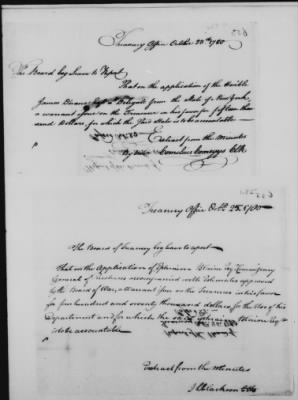 Treasury Office October 20th 1780
The Board beg leave to Report
That on the application of the Honble
James Duane Esqr a Delegate from the State of New York,
a warrant issue on the Treasurer in his favor for
Dollars, for which the said State is to be accountable
Extract from the Minutes
Clk
Treasury Office Octr 1780
The Board of Treasury beg leave to report
That on the Application of Ephraim Blaine Esq Commissary
General of Purchases accompanied with Estimates approved
by the Board of War, a Warrant issue on the Treasurer in his favor
for five hundred and seventy thousand dollars for the Use of his
Department and for which the said Ephraim Blaine Esqr
is to be accountable
Extract from the Minutes